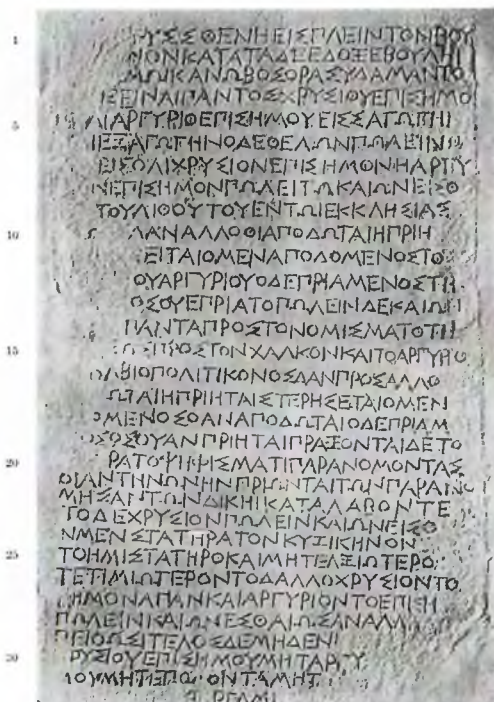 1 ΡΥΣΣΘΕΝΗΕΙΣΠΛΕΙΝΤΟΝΒΟΥ
ΝΟΝΚΑΤΑΤΑΔΕΕΔΟΞΕΒΟΥΛΗΙ
ΜΩΙΚΑΝΩΒΟΣΘΡΑΣΥΔΑΜΑΝΤΟ
ΕΕΙΝΑΙΠΑΝΤΟΣΧΡΥΣΙΟΥΕΠΙΣΗΜΟ
5 ΑΙΑΡΓΥΡΙΟΕΠΙΣΗΜΟΥΕΙΣΣΑΓΩΓΗΙ
ΙΕΞΑΓΩΓΗΝΟΔΕΘΕΛΩΝΠΩΛΕΙΝΗΩ
ΕΙΣΘΑΙΧΡΥΣΙΟΝΕΠΙΣΗΜΟΝΗΑΡΓΥ
ΝΕΠΙΣΗΜΟΝΠΩΛΕΙΤΩΚΑΙΩΝΕΙΣΘ
ΤΟΥΛΙΘΟΥΤΟΥΕΝΤΩΙΕΚΚΛΗΣΙΑΣ
10 ΔΑΝΑΛΛΟΘΙΑΠΟΔΩΤΑΙΗΠΡΙΗ
ΕΙΤΑΙΟΜΕΝΑΠΟΔΟΜΕΝΟΣΤΟ
ΟΥΑΡΓΥΡΙΟΥΟΔΕΠΡΙΑΜΕΝΟΣΤΗ
ΟΣΟΥΕΠΡΙΑΤΟΠΩΛΕΙΝΔΕΚΑΙΩΝ
ΠΑΝΤΑΠΡΟΣΤΟΝΟΜΙΣΜΑΤΟΤΗ
15 ΩΣΠΡΟΣΤΟΝΧΑΛΚΟΝΚΑΙΤΟΑΡΓΥΡΙΟ
ΟΛΒΙΟΠΟΛΙΤΙΚΟΝΟΣΔΑΝΠΡΟΣΑΛΛΟ
ΩΤΑΙΗΠΡΙΗΤΑΙΣΤΕΡΗΣΕΤΑΙΟΜΕΝ
ΟΜΕΝΟΣΟΑΝΑΠΟΔΩΤΑΙΟΔΕΠΡΙΑΜ
ΟΣΟΣΟΥΑΝΠΡΙΗΤΑΙΠΡΑΞΟΝΤΑΙΔΕΤΟ
20 ΡΑΤΟΨΗΦΙΣΜΑΤΙΠΑΡΑΝΟΜΟΝΤΑΣ
ΟΙΑΝΤΗΝΩΝΗΝΠΡΙΩΝΤΑΙΤΩΝΠΑΡΑΝΟ
ΜΗΣΑΝΤΩΝΔΙΚΗΙΚΑΤΑΛΑΒΟΝΤΕ
ΤΟΔΕΧΡΥΣΙΟΝΠΩΛΕΙΝΚΑΙΩΝΕΙΣΘ
ΝΜΕΝΣΤΑΤΗΡΑΤΟΝΚΥΖΙΚΗΝΟΝ
25 ΤΟΗΜΙΣΤΑΤΗΡΟΚΑΙΜΗΤΕΑΞΙΩΤΕΡΟ
ΤΕΤΙΜΙΩΤΕΡΟΝΤΟΔΑΛΛΟΧΡΥΣΙΟΝΤΟ
ΗΜΟΝΑΠΑΝΚΑΙΑΡΓΥΡΙΟΝΤΟΕΠΙΣΗ
ΠΩΛΕΙΝΚΑΙΩΝΕΣΘΑΙΩΣΑΝΑΛΛΗ
ΠΕΙΘΩΣΙΤΕΛΟΣΔΕΜΗΔΕΝΙ
30 ΡΥΣΙΟΥΕΠΙΣΗΜΟΥΜΗΤΑΡΓΥ
ΙΟΥΜΗΤΕΠΩ ΟΝΤΑΜΗΤ